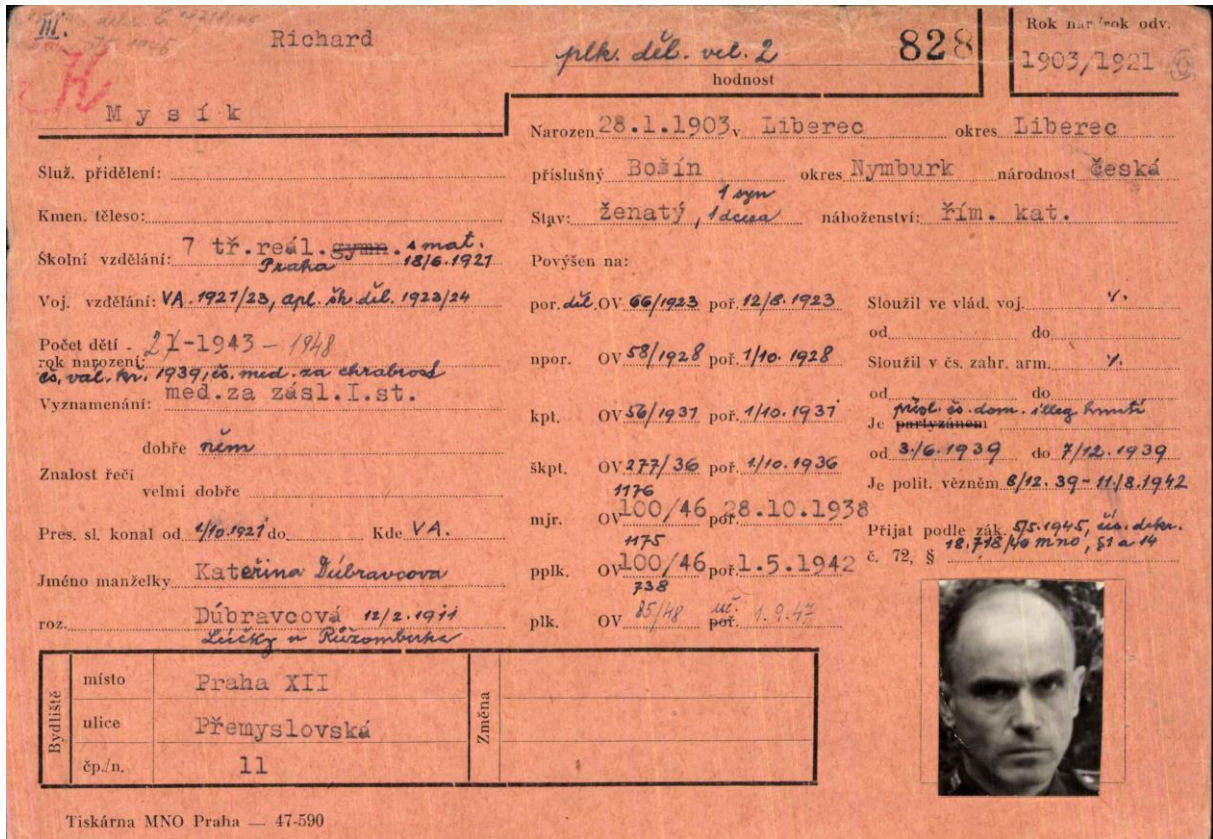 III.
Richard
Mysík
plk. děl. vel. 2
hodnost
828
Rok nar./rok odv.
1903/1921
Služ. přidělení:
Kmen. těleso:
Školní vzdělání: 7 tř.reál.gymn. s mat.
Praha 18/6.1921
Voj. vzdělání: VA. 1921/23, apl. šk. děl. 1923/24
Počet dětí - 2 1-1943 - 1948
rok narození:
čs. vál. kř. 1939, čs. med. za chrabrost
Vyznamenání: med.za zásl.I.st.
dobře něm
Znalost řečí
velmi dobře
Pres. sl. konal od 1/10.1921 do Kde VA.
Jméno manželky Kateřina Dúbravcova
roz. Dúbravcová 12/2.1911
Lúčky u Růžomberka
Narozen 28.1.1903 v Liberec okres Liberec
příslušný Bošín okres Nymburk národnost česká
1 syn
Stav: ženatý, 1 dcera náboženství: řím. kat.
Povýšen na:
por. děl. OV 66/1923 poř. 12/8.1923
npor. OV 58/1928 poř. 1/10.1928
kpt. OV 56/1931 poř. 1/10.1931
škpt. OV 277/36 poř. 1/10.1936
1176
mjr. OV 100/46 poř. 28.10.1938
1175
pplk. OV 100/46 poř. 1.5.1942
738
plk. OV 85/48 úč. poř. 1.9.47
Sloužil ve vlád. voj. ./.
od do
Sloužil v čs. zahr. arm. ./.
od do
přísl. čs. dom. illeg. hnutí
Je partyzánem
od 3./6.1939 do 7/12.1939
Je polit. vězněm 8/12.39-11./8.1942
Přijat podle zák. 5/5.1945, čís. dekr.
č. 72, § 18.718/46 MNO, §1 a 14
Bydliště
místo Praha XII
ulice Přemyslovská
čp./n. 11
Změna
Tiskárna MNO Praha — 47-590